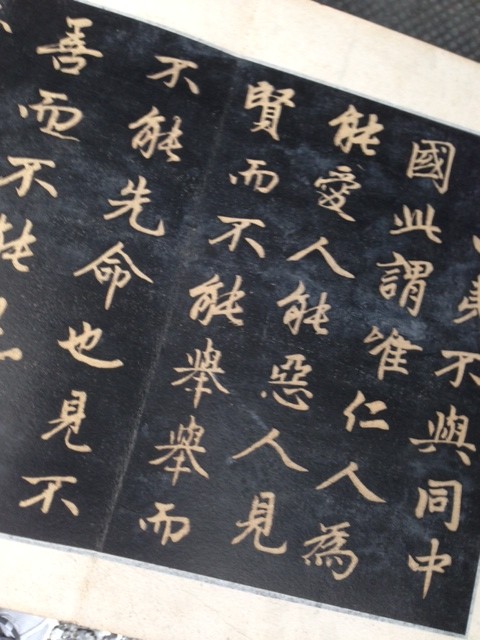 夷不與同中
國此謂唯仁人為
能愛人能惡人見
賢而不能舉舉而
不能先命也見不
善而不能